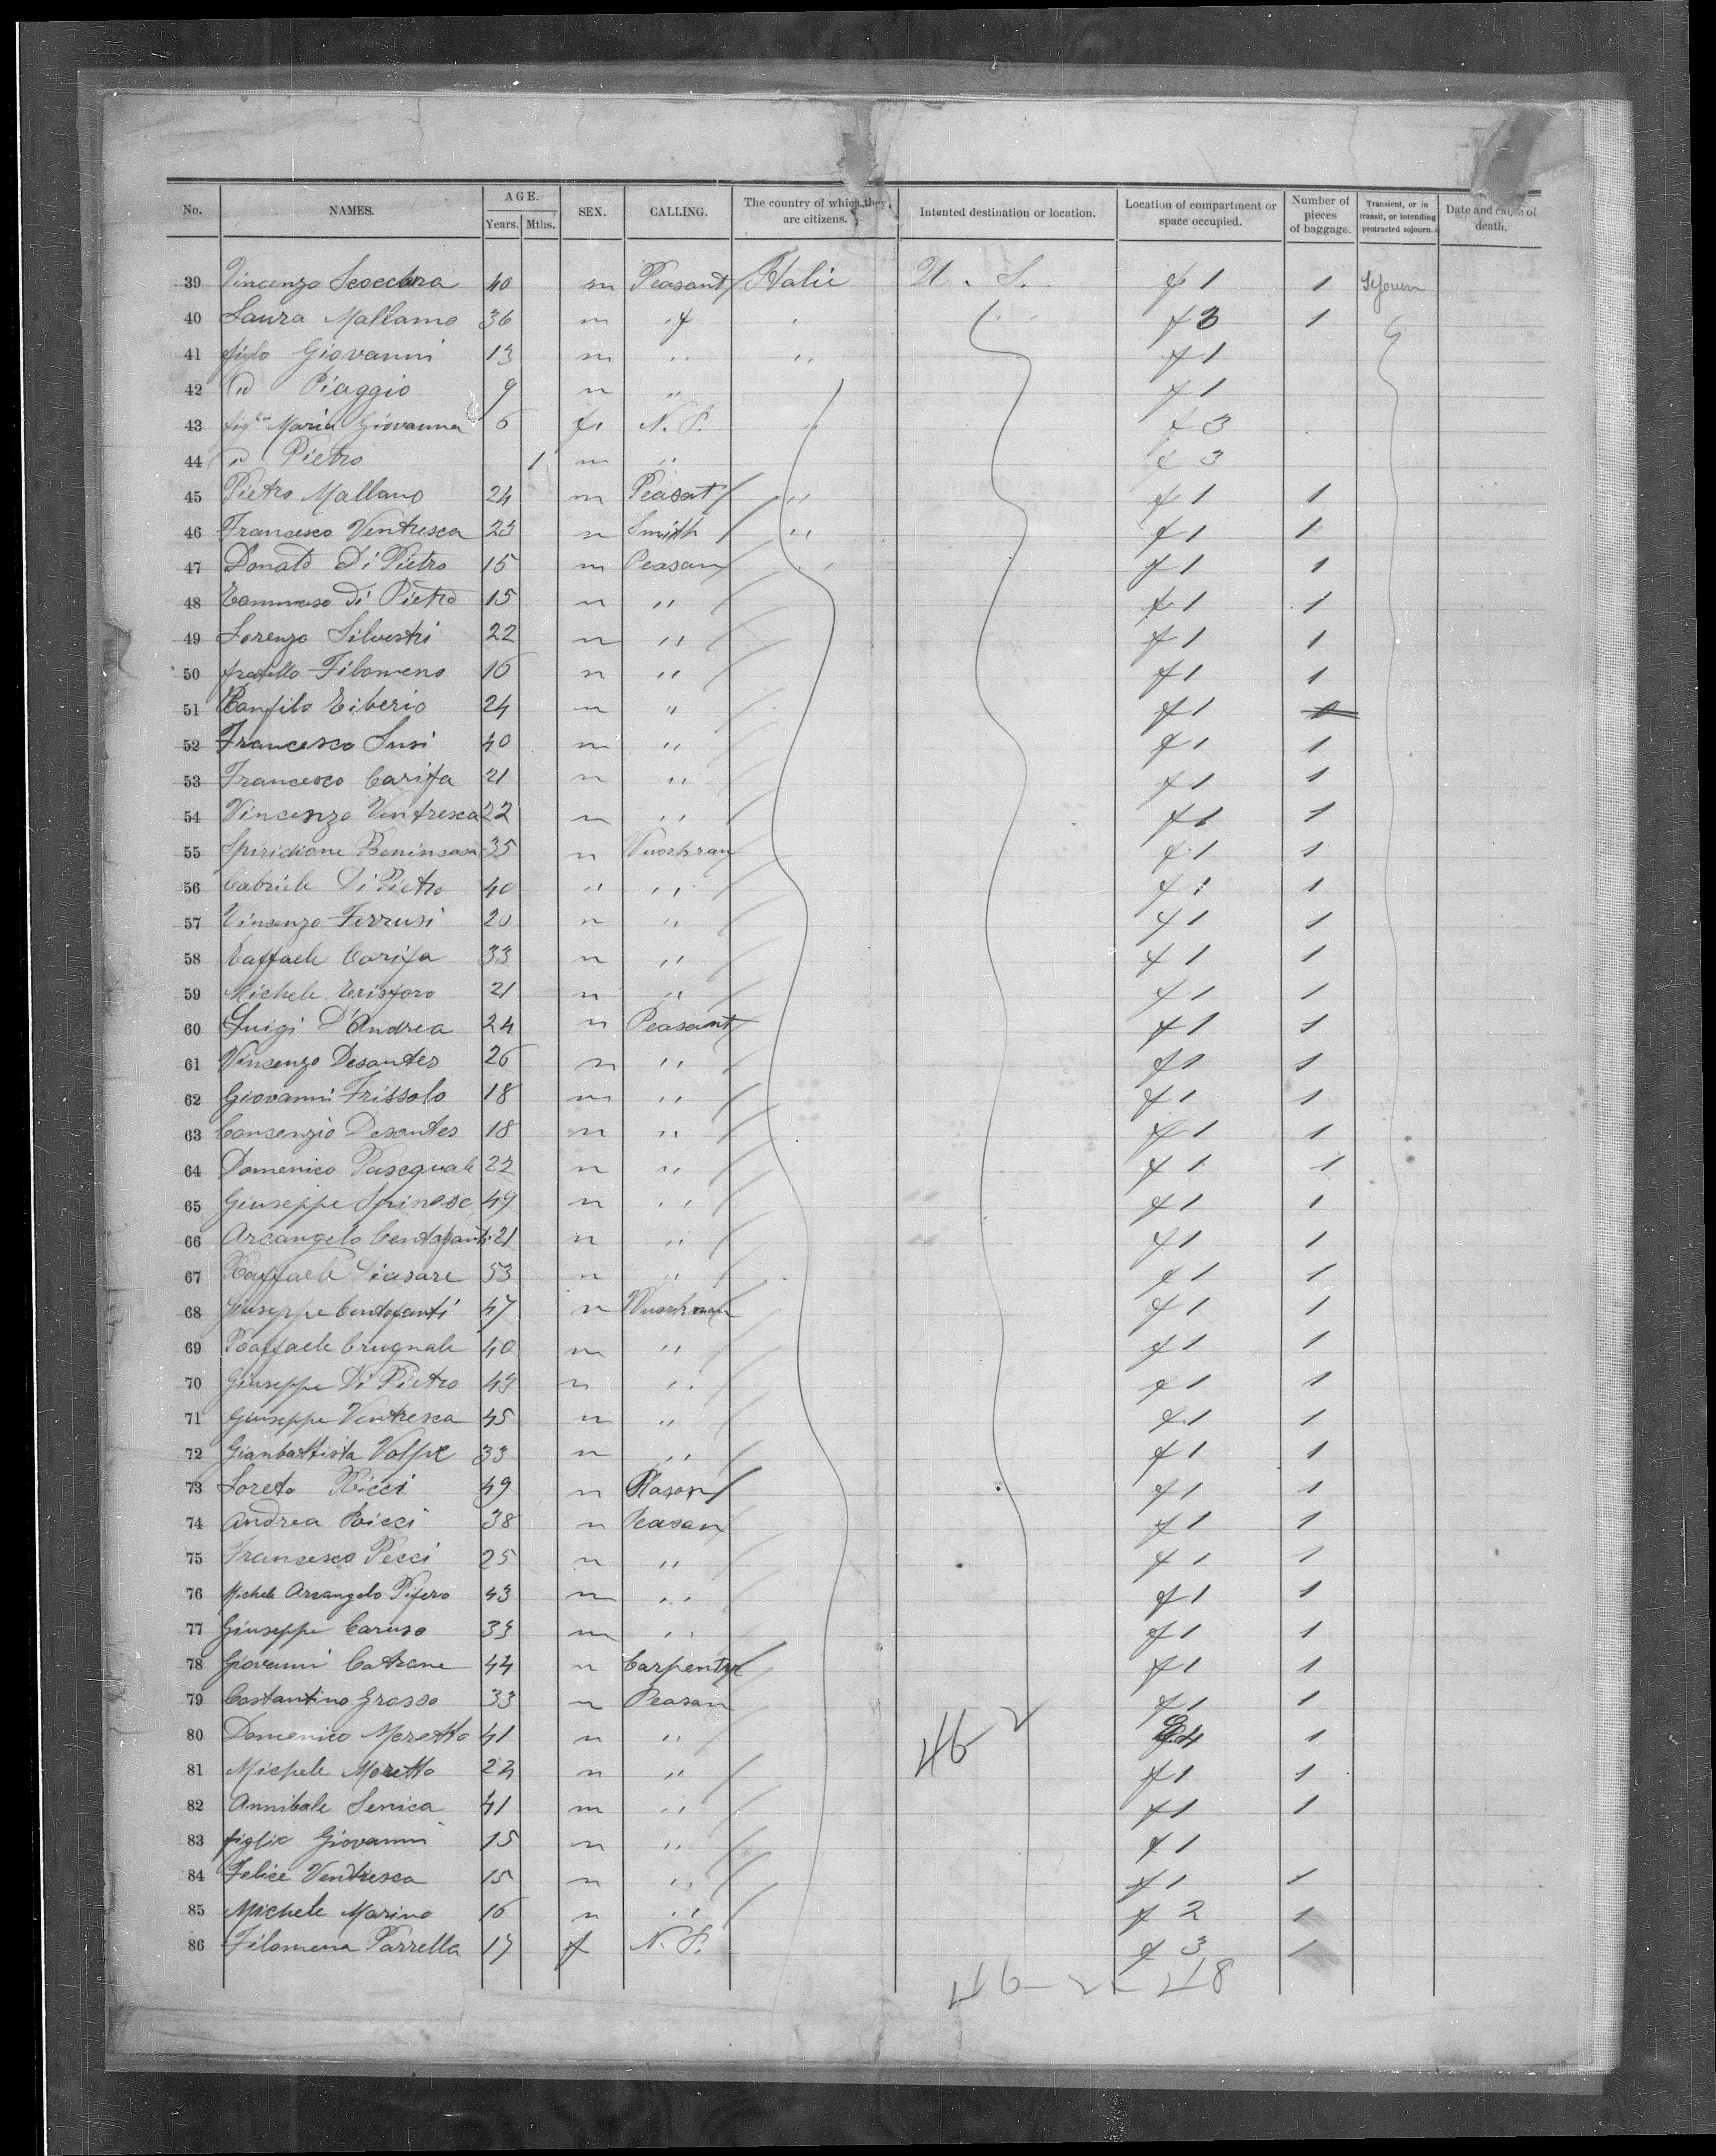 No. NAMES. AGE. Years. Mths. SEX. CALLING. The country of which they are citizens. Intented destination or location. Location of compartment or space occupied. Number of pieces of baggage. Transient, or in transit, or intending protracted sojourn. Date and cause of death.
39 Vincenzo 40 m Peasant Italie U. S. f 1 1 Sojourn
40 Laura Mallamo 36 m " f 3 1
41 figlo Giovanni 13 m " " f 1
42 id Piaggio 9 m " f 1
43 Maria Giovanna 6 f. N. P. " f 3
44 id Pietro 1 m " f 3
45 Pietro Mallamo 24 m Peasat " f 1 1
46 Francesco Ventresca 23 m Smith " f 1 1
47 Donato Di Pietro 15 m Peasan " f 1 1
48 Tommaso Di Pietro 15 m " f 1 1
49 Lorenzo Silvestri 22 m " f 1 1
50 fratello Filomeno 16 m " f 1 1
51 Panfilo Tiberio 24 m " f 1 1
52 Francesco Susi 40 m " f 1 1
53 Francesco Carifa 21 m " f 1 1
54 Vincenzo Ventresca 22 m " f 1 1
55 Spiridione Beninsasa 35 m f 1 1
56 Gabriele Di Pietro 40 " " f 1 1
57 Vincenzo Ferrusi 20 m " f 1 1
58 Raffaele Carifa 33 m " f 1 1
59 Michele 21 m " f 1 1
60 Luigi D'Andrea 24 m Peasant f 1 1
61 Vincenzo Desantes 26 m " f 1 1
62 Giovanni Frissolo 18 m " f 1 1
63 Consenzio Desantes 18 m " f 1 1
64 Domenico Pasequale 22 m " f 1 1
65 Giuseppe Spinosa 49 m " f 1 1
66 Arcangelo Centofanti 21 m " f 1 1
67 Raffaele 53 m " f 1 1
68 Giuseppe Centofanti 47 m Wuorkman f 1 1
69 Raffaele Crugnale 40 m " f 1 1
70 Giuseppe Di Pietro 43 m " f 1 1
71 Giuseppe Ventresca 45 m " f 1 1
72 Gianbattista Volpe 33 m " f 1 1
73 Loreto Ricci 49 m f 1 1
74 Andrea Ricci 38 m Peasan f 1 1
75 Francesco Pecci 25 m " f 1 1
76 Michele Arcangelo Pifero 43 m " f 1 1
77 Giuseppe Caruso 33 m " f 1 1
78 Giovanni Catrane 44 m Carpenter f 1 1
79 Costantino Grosso 33 m Peasan f 1 1
80 Domenico Moretto 41 m " 46 2 1
81 Michele Moretto 23 m " f 1 1
82 Annibale Senica 41 m " f 1 1
83 figlio Giovanni 15 m " f 1
84 Felice Ventresca 15 m " f 1 1
85 Michele Marino 16 m " f 2 1
86 Filomena Parrella 17 f N. P. f 3 1
46 - 2 - 48